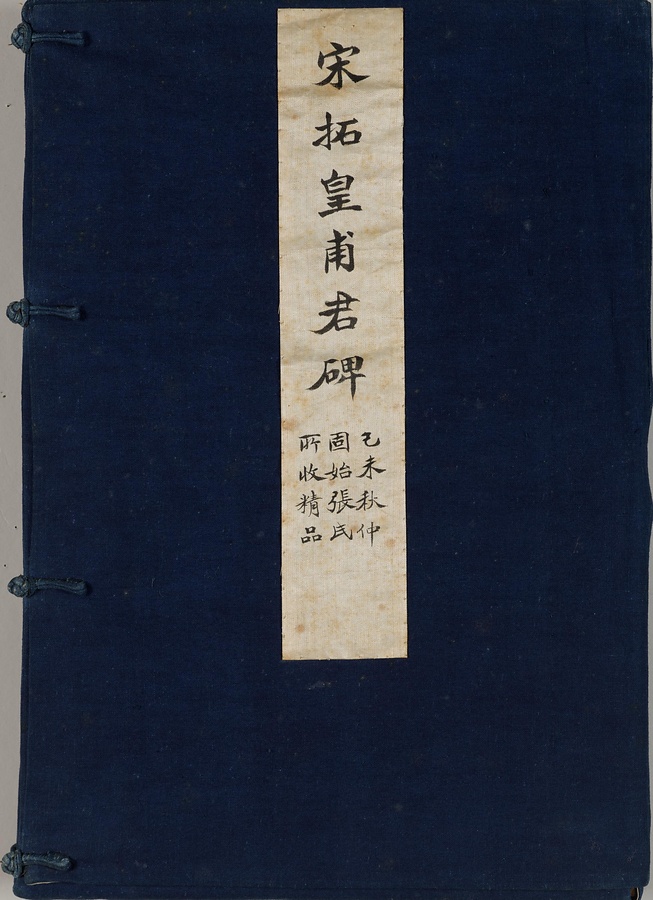 宋拓皇甫君碑
乙未秋仲
固始張氏
所收精品